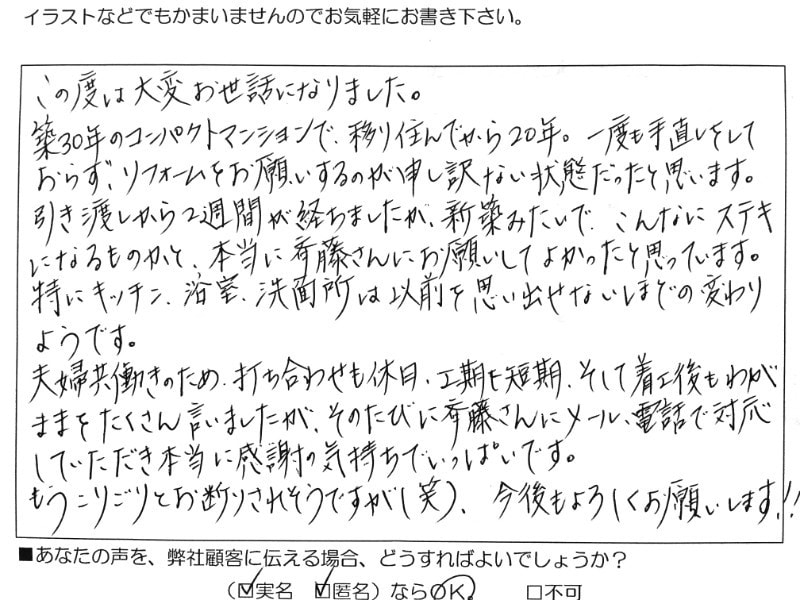 イラストなどでもかまいませんのでお気軽にお書き下さい。
この度は大変お世話になりました。
築30年のコンパクトマンションで、移り住んでから20年。一度も手直しをして
おらず、リフォームをお願いするのが申し訳ない状態だったと思います。
引き渡しから2週間が経ちましたが、新築みたいで、こんなにステキ
になるものかと、本当に斉藤さんにお願いしてよかったと思っています。
特にキッチン、浴室、洗面所は以前を思い出せないほどの変わり
ようです。
夫婦共働きのため、打ち合わせも休日、工期も短期、そして着工後もわが
ままをたくさん言いましたが、そのたびに斉藤さんにメール、電話で対応
していただき本当に感謝の気持ちでいっぱいです。
もうこりごりとお断りされそうですが(笑)、今後もよろしくお願いします!!
■あなたの声を、弊社顧客に伝える場合、どうすればよいでしょうか?
(☑実名 ☑匿名)ならOK。 □不可